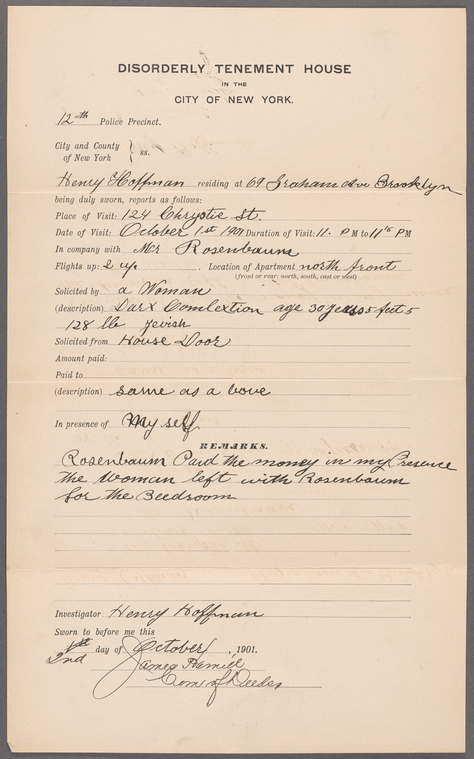 DISORDERLY TENEMENT HOUSE
IN THE
CITY OF NEW YORK.
12th Police Precinct.
City and County
of New York } ss.
Henry Hoffman residing at 69 Graham Ave Brooklyn
being duly sworn, reports as follows:
Place of Visit: 124 Chrystie St.
Date of Visit: October 1st 1901 Duration of Visit: 11. PM to 11 15 PM
In company with Mr Rosenbaum
Flights up: 2 up. Location of Apartment north front
(front or rear: north, south, east or west)
Solicited by a Woman
(description) Dark Comlextion age 30 years 5 feet 5
128 lb Jevish
Solicited from House Door
Amount paid:
Paid to
(description) same as a bove
In presence of My self
REMARKS.
Rosenbaum Paid the money in my Presence
the Woman left with Rosenbaum
for the Beedroom
Investigator Henry Hoffman
Sworn to before me this
1st
2nd day of October, 1901.
James Hamill
Com of Deeds